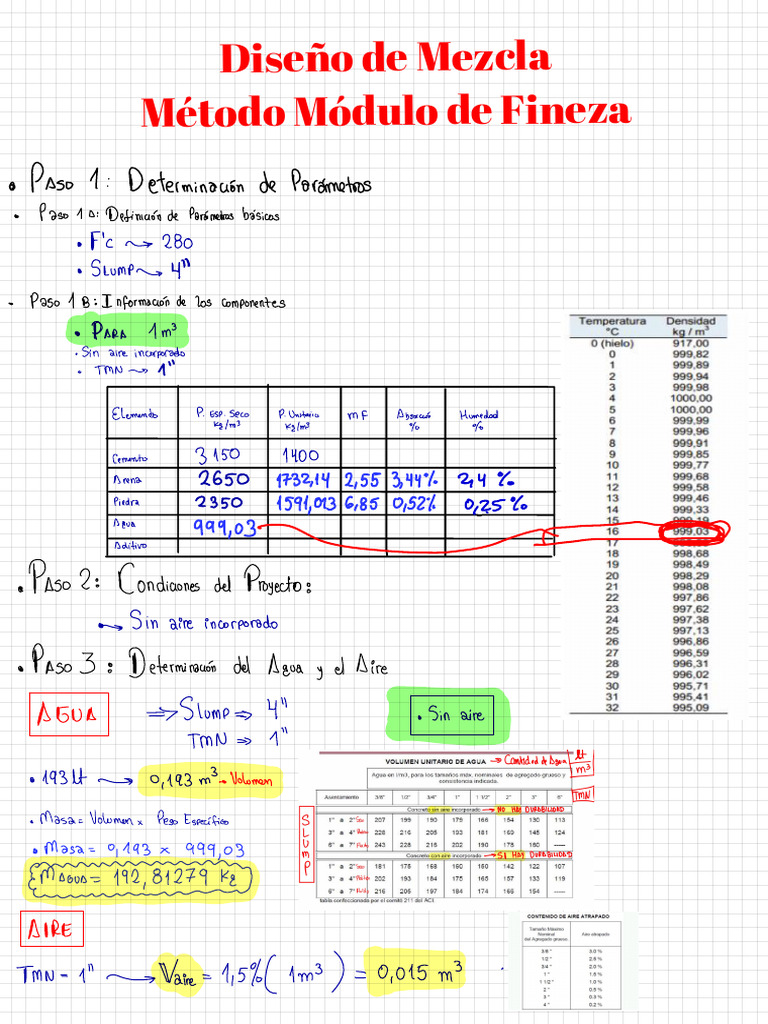 Diseño de Mezcla
Método Módulo de Fineza
• PASO 1: Determinación de Parámetros
• Paso 1A: Definición de Parámetros básicos
• F'c → 280
• SLUMP → 4"
- Paso 1B: Información de los componentes
• PARA 1 m³
• Sin aire incorporado
• TMN → 1"
Elemento P. Esp. Seco kg/m³ P. Unitario kg/m³ MF Absorción % Humedad %
Cemento 3150 1400
Arena 2650 1732,14 2,55 3,44% 2,4 %
Piedra 2350 1591,013 6,85 0,52% 0,25%
Agua 999,03
Aditivo
Temperatura °C Densidad kg / m³
0 (hielo) 917,00
0 999,82
1 999,89
2 999,94
3 999,98
4 1000,00
5 1000,00
6 999,99
7 999,96
8 999,91
9 999,85
10 999,77
11 999,68
12 999,58
13 999,46
14 999,33
15 999,19
16 999,03
17
18 998,68
19 998,49
20 998,29
21 998,08
22 997,86
23 997,62
24 997,38
25 997,13
26 996,86
27 996,59
28 996,31
29 996,02
30 995,71
31 995,41
32 995,09
• PASO 2: Condiciones del Proyecto:
→ Sin aire incorporado
• PASO 3: Determinación del Agua y el Aire
AGUA
⇒ SLUMP ⇒ 4"
TMN ⇒ 1"
• Sin aire
• 193 lt → 0,193 m³ → Volumen
• Masa = Volumen x Peso Específico
• Masa = 0,193 x 999,03
MAGUA = 192,81279 kg
VOLUMEN UNITARIO DE AGUA → Cantidad de Agua lt/m³
Agua en l/m3, para los tamaños máx. nominales de agregado grueso y consistencia indicada.
TMN
Asentamiento 3/8" 1/2" 3/4" 1" 1 1/2" 2" 3" 6"
SLUMP
Concreto sin aire incorporado → NO HAY DURABILIDAD
1" a 2" 207 199 190 179 166 154 130 113
3" a 4" 228 216 205 193 181 169 145 124
6" a 7" 243 228 215 202 190 178 180 -----
Concreto con aire incorporado → SI HAY DURABILIDAD
1" a 2" 181 175 168 160 150 142 122 107
3" a 4" 202 193 184 175 165 157 133 119
6" a 7" 216 205 197 184 174 166 154 -----
tabla confeccionada por el comité 211 del ACI.
AIRE
TMN = 1" → Vaire = 1,5% (1m³) = 0,015 m³
CONTENIDO DE AIRE ATRAPADO
Tamaño Máximo Nominal del Agregado grueso Aire atrapado
3/8 " 3.0 %
1/2 " 2.5 %
3/4 " 2.0 %
1 " 1.5 %
1 1/2 " 1.0 %
2 " 0.5 %
3 " 0.3 %
4 " 0.2 %